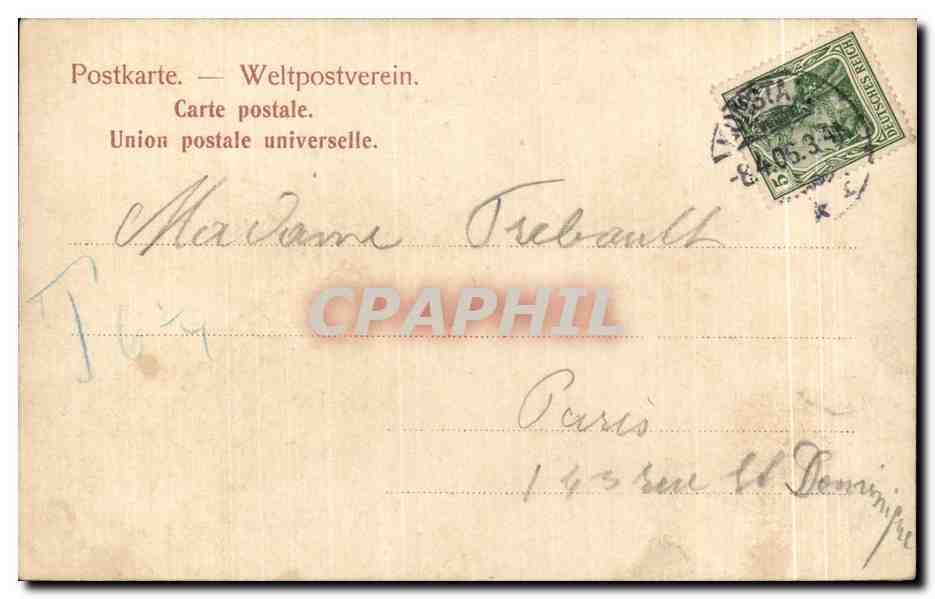 Postkarte. — Weltpostverein.
Carte postale.
Union postale universelle.
DEUTSCHES REICH
5
-8.4.06.3
Madame Trebault
T
CPAPHIL
Paris
143 rue St Dominique